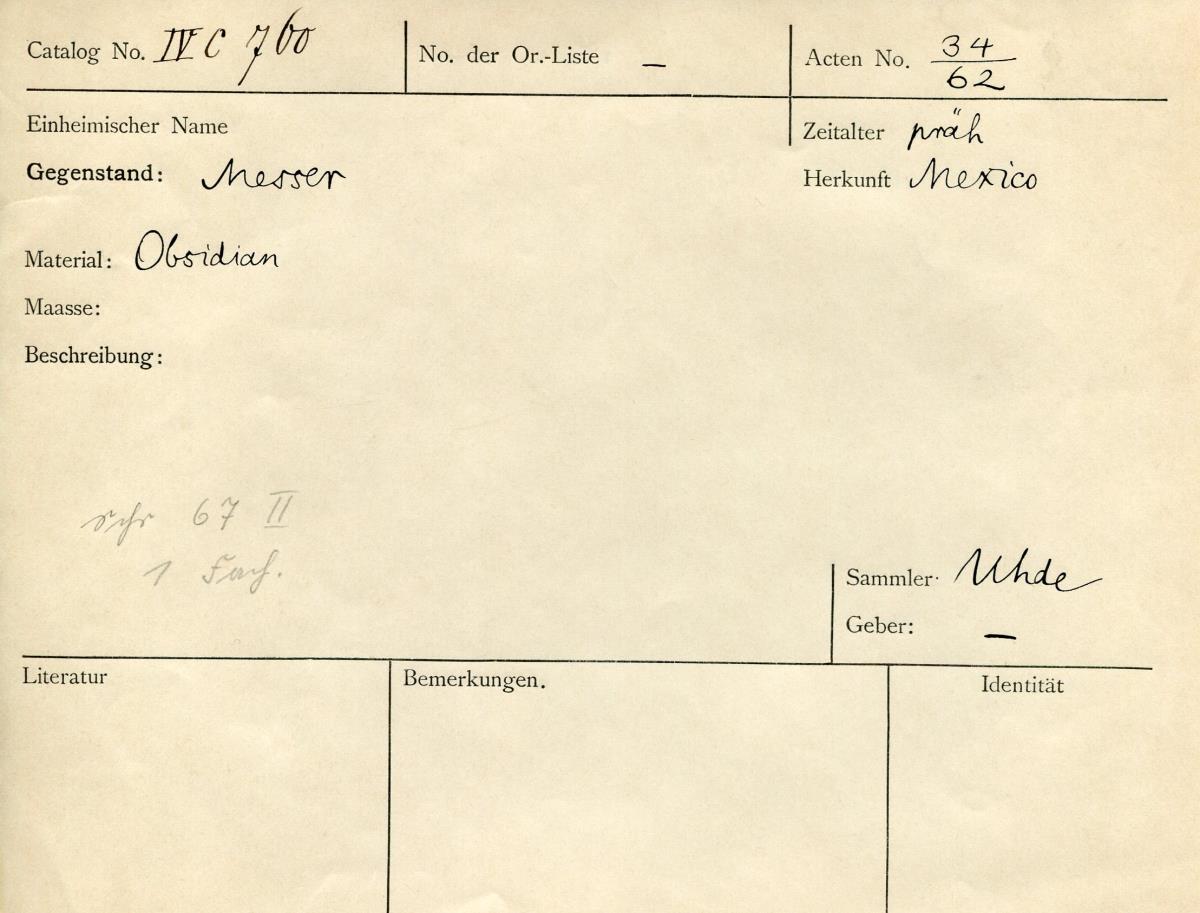 Catalog No. IV C 760
No. der Or.-Liste –
Acten No. 34/62
Einheimischer Name
Zeitalter präh
Gegenstand: Messer
Herkunft Mexico
Material: Obsidian
Maasse:
Beschreibung:
schr 67 II
1 Fach.
Sammler Uhde
Geber: –
Literatur
Bemerkungen.
Identität